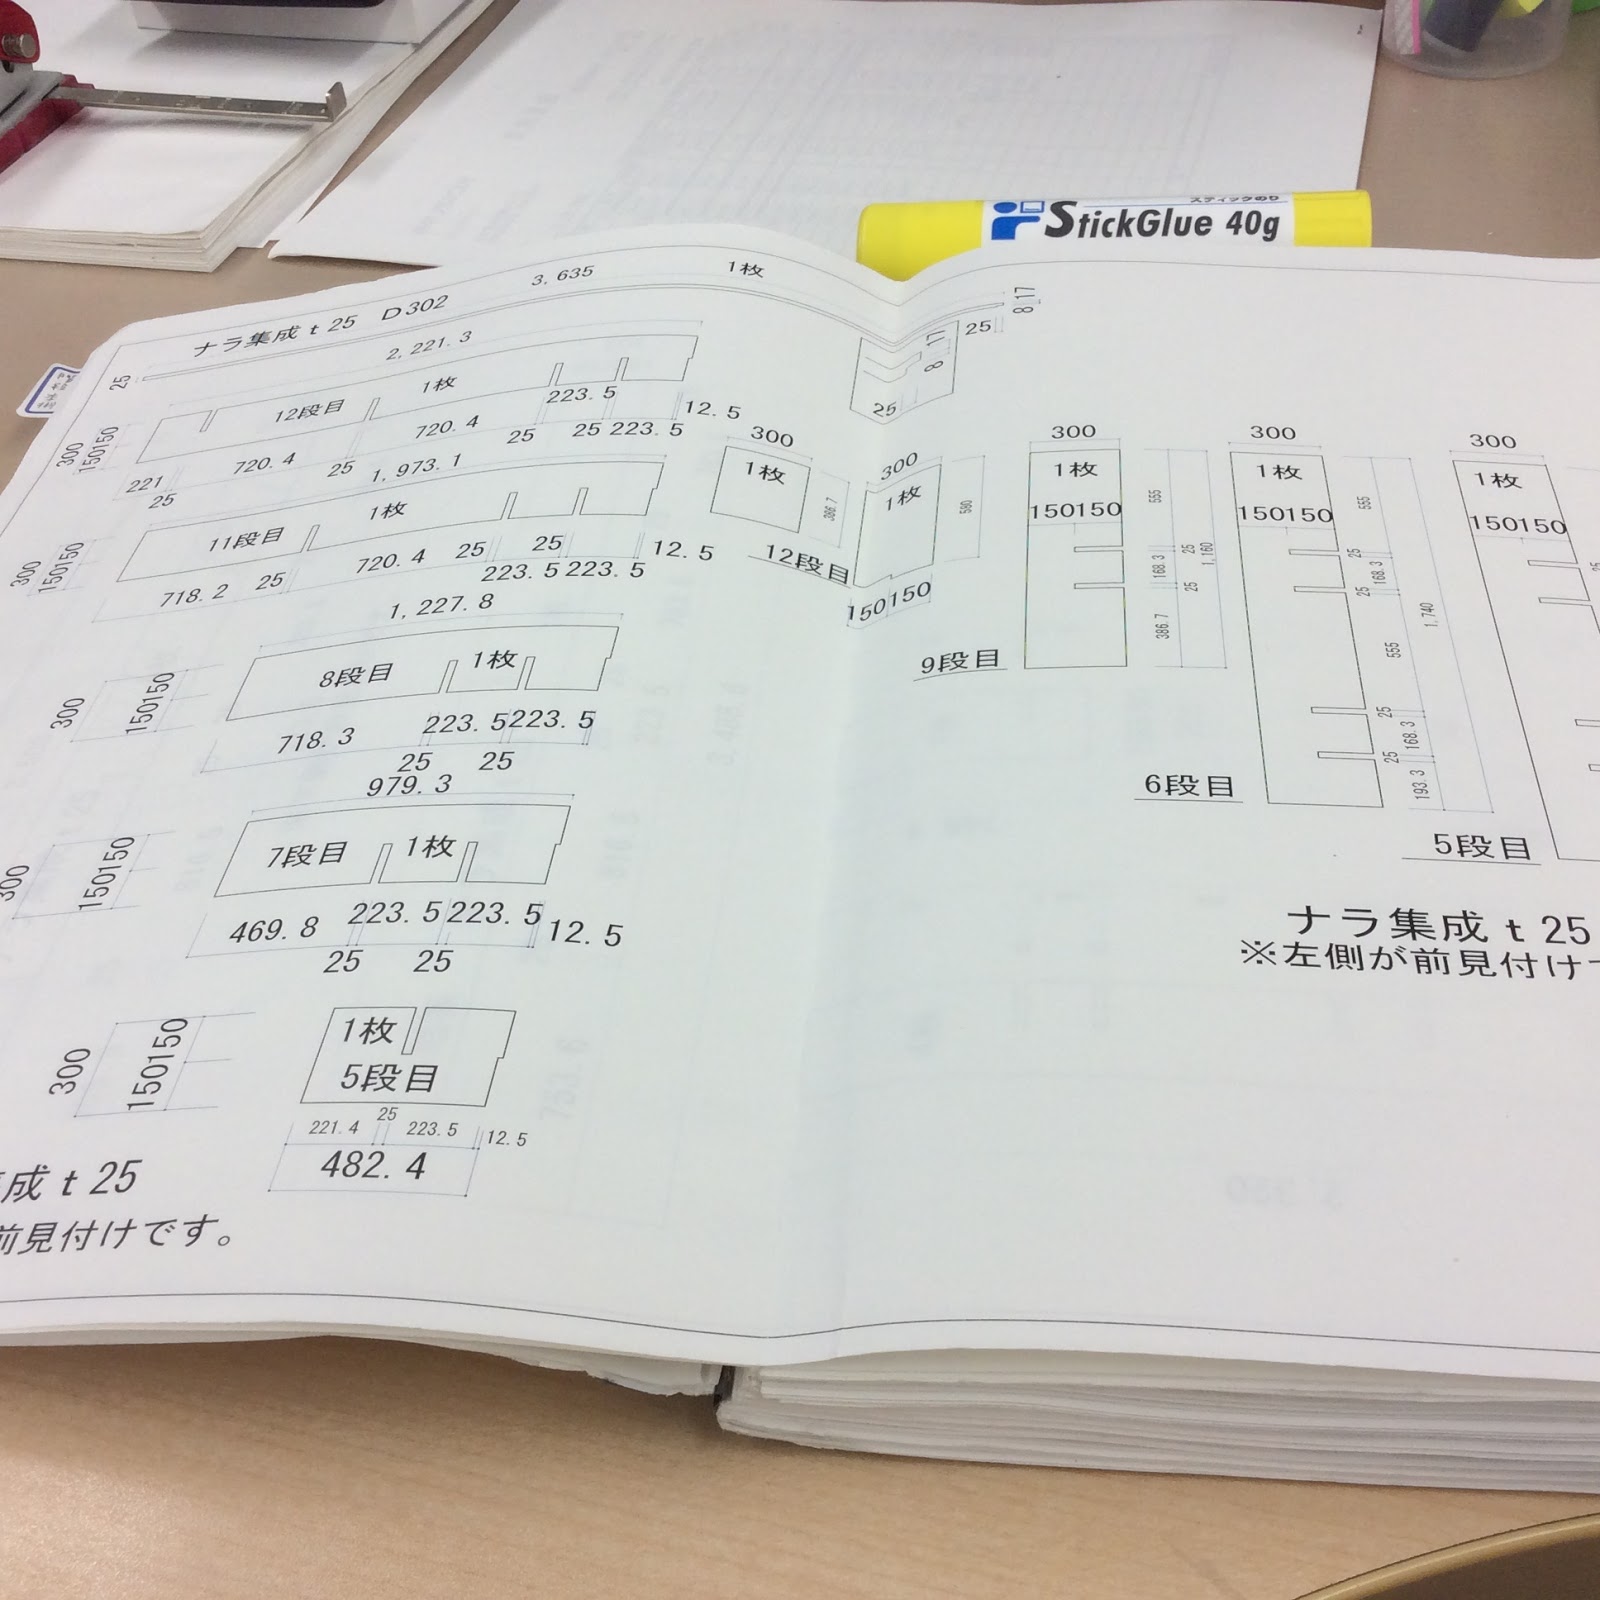 スティックのり
StickGlue 40g
ナラ集成 t 25 D302
3,635
1枚
25
8 17
25
8 17
25
2,221.3
12段目
1枚
300
150150
221
25
720.4
25
720.4
25
223.5
25
223.5
12.5
1,973.1
11段目
1枚
300
150150
718.2
25
720.4
25
223.5
25
223.5
12.5
1,227.8
8段目
1枚
300
150150
718.3
25
223.5
25
223.5
979.3
7段目
1枚
300
150150
469.8
25
223.5
25
223.5
12.5
1枚
5段目
300
150150
221.4
25
223.5
12.5
482.4
成 t 25
前見付けです。
300
1枚
386.7
300
1枚
580
150150
12段目
300
1枚
150150
555
25
168.3
25
386.7
1,160
9段目
300
1枚
150150
555
25
168.3
25
555
25
168.3
25
193.3
1,740
6段目
300
1枚
150150
25
5段目
ナラ集成 t 25
※左側が前見付け